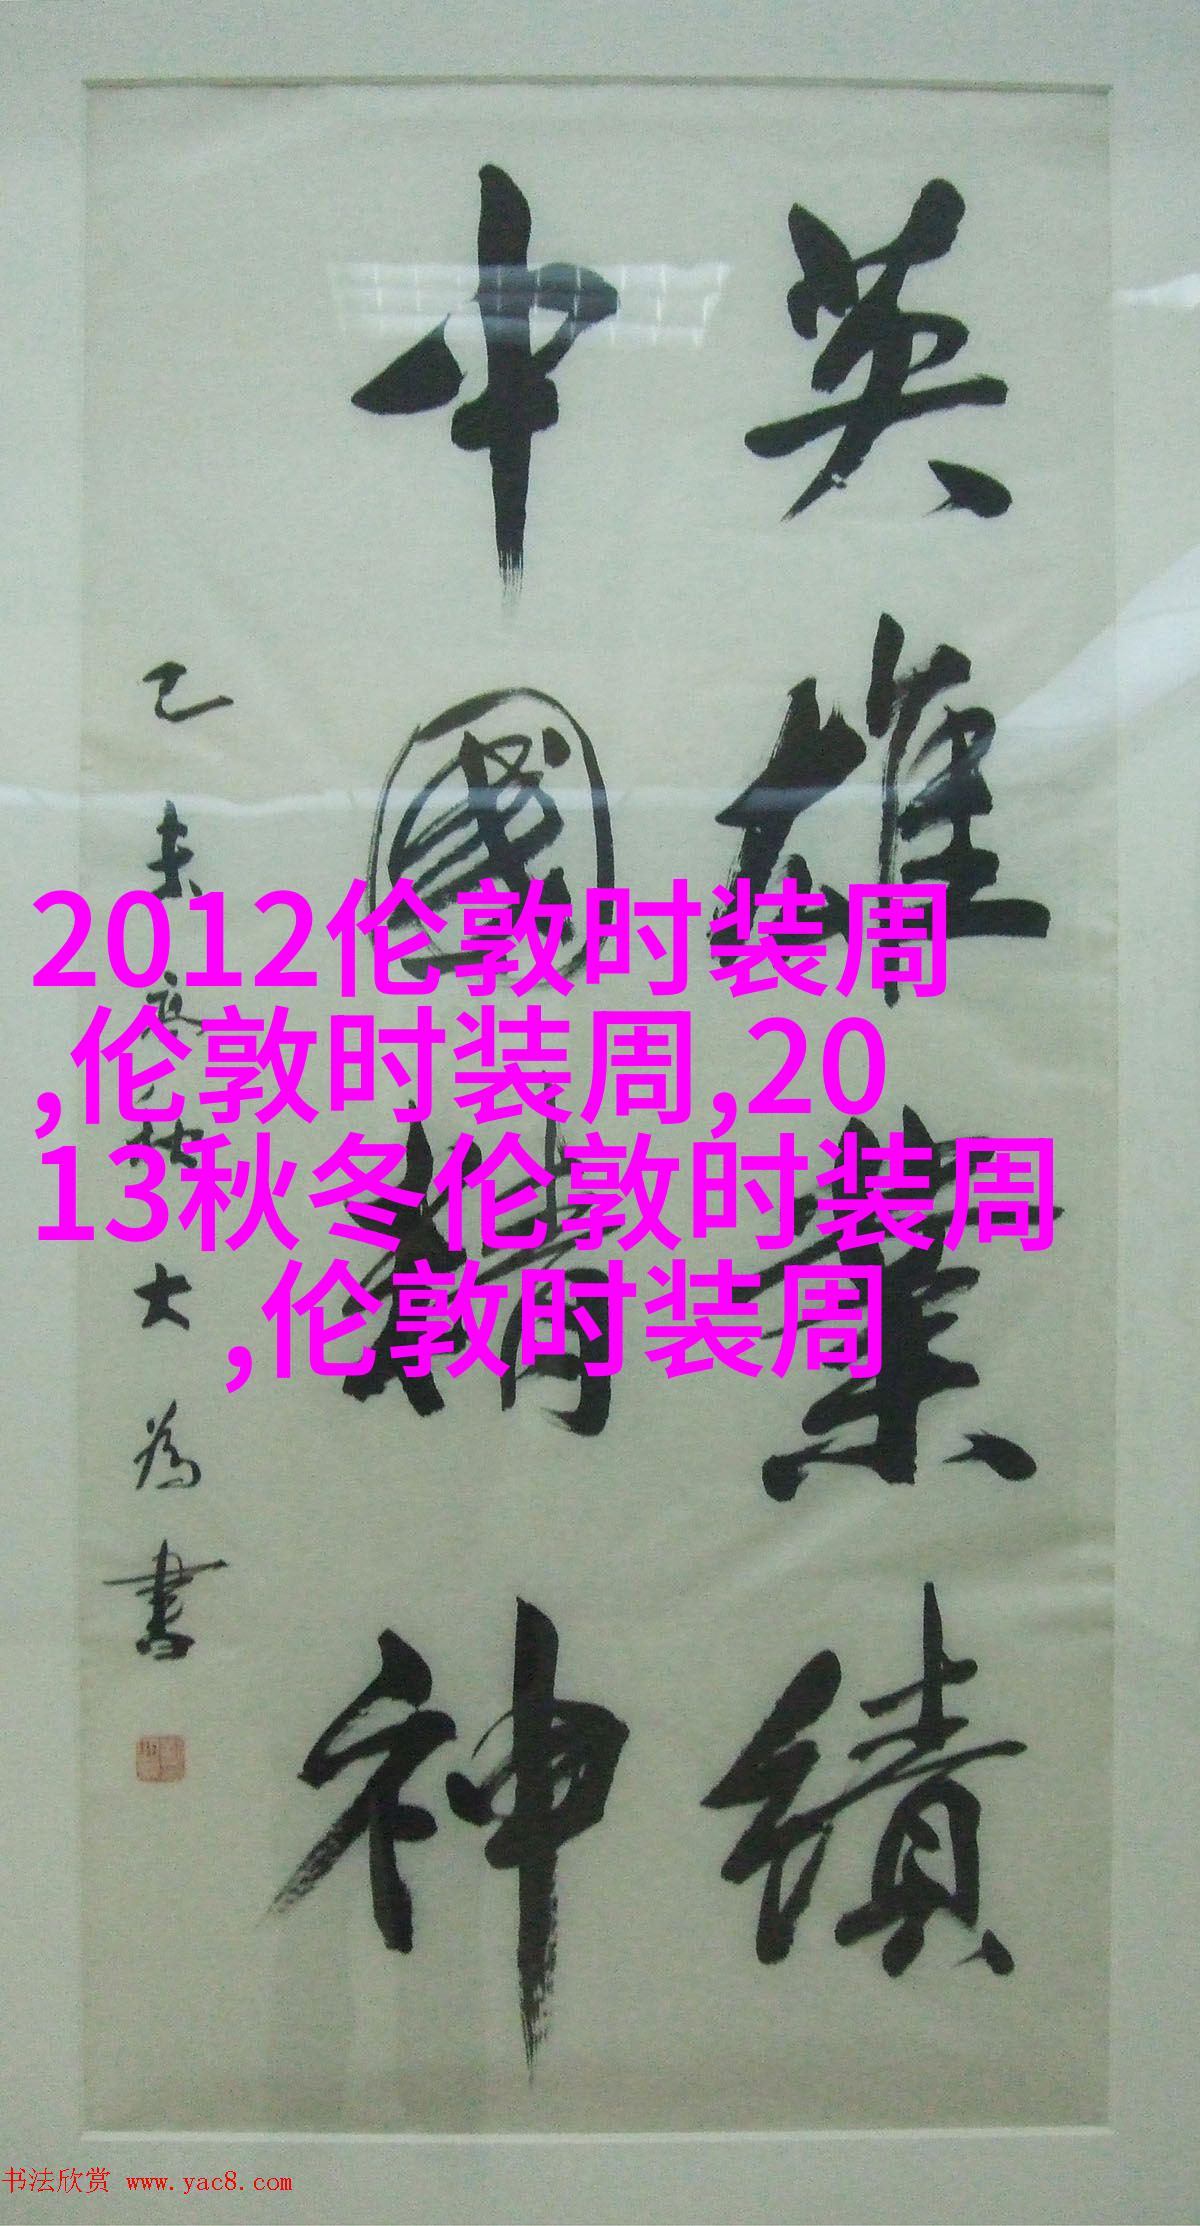 英雄業績
中國精神
大為書
2012伦敦时装周
,伦敦时装周,20
13秋冬伦敦时装周
,伦敦时装周
书法欣赏 www.yac8.com